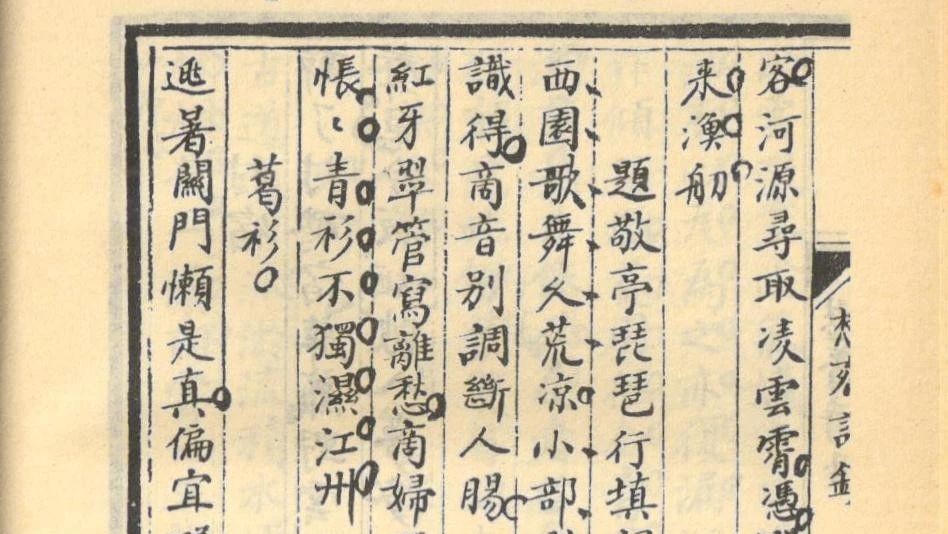 客河源尋取凌雲霄憑
来漁舠
題敬亭琵琶行填詞
西園歌舞久荒凉小部
識得啇音別調斷人腸
紅牙翠管寫離愁啇婦
悵〻青衫不獨濕江州
葛衫
逃暑關門懶是真偏宜